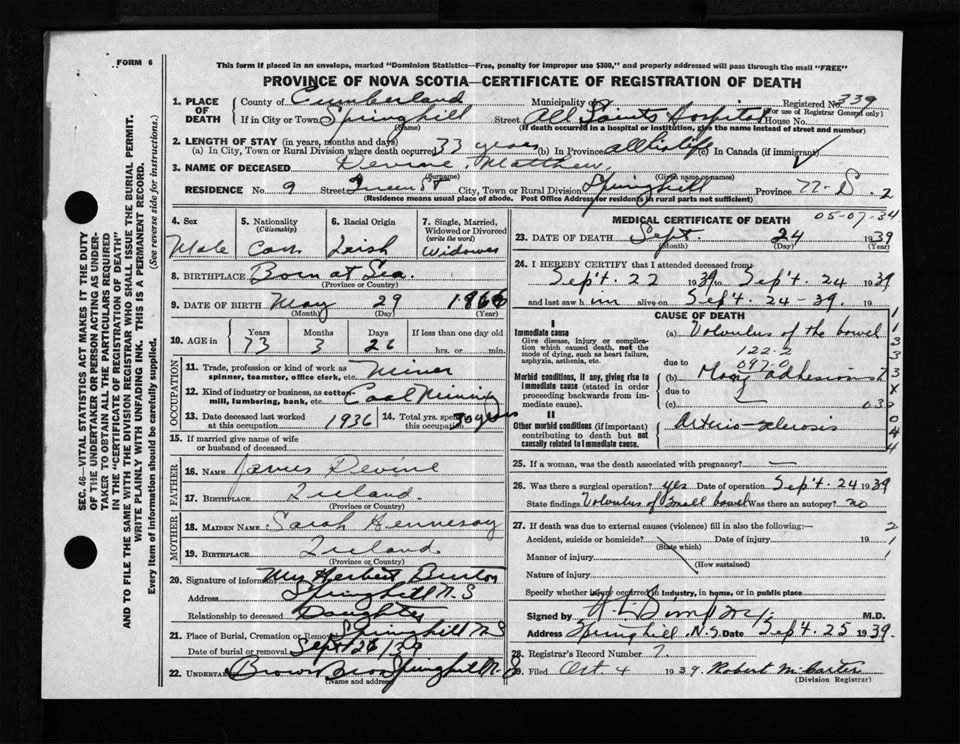 FORM 6
This form if placed in an envelope, marked "Dominion Statistics—Free, penalty for improper use $300," and properly addressed will pass through the mail "FREE"
PROVINCE OF NOVA SCOTIA—CERTIFICATE OF REGISTRATION OF DEATH
SEC. 46—VITAL STATISTICS ACT MAKES IT THE DUTY
OF THE UNDERTAKER OR PERSON ACTING AS UNDER-
TAKER TO OBTAIN ALL THE PARTICULARS REQUIRED
IN THE "CERTIFICATE OF REGISTRATION OF DEATH"
AND TO FILE THE SAME WITH THE DIVISION REGISTRAR WHO SHALL ISSUE THE BURIAL PERMIT.
WRITE PLAINLY WITH UNFADING INK. THIS IS A PERMANENT RECORD.
Every item of information should be carefully supplied. (See reverse side for instructions.)
1. PLACE OF DEATH County of Cumberland Municipality of Registered No. 339
(For use of Registrar General only)
If in City or Town Springhill Street All Saints Hospital House No.
(Name) (If death occurred in a hospital or institution, give the name instead of street and number)
2. LENGTH OF STAY (in years, months and days)
(a) In City, Town or Rural Division where death occurred 33 years (b) In Province all his life (c) In Canada (if immigrant)
3. NAME OF DECEASED Devine Matthew
(Surname) (Given name or names)
RESIDENCE No. 9 Street Queen St City, Town or Rural Division Springhill Province N. S. 2
(Residence means usual place of abode. Post Office Address for residents in rural parts not sufficient)
4. Sex Male
5. Nationality (Citizenship) Can
6. Racial Origin Irish
7. Single, Married, Widowed or Divorced (write the word) Widower
8. BIRTHPLACE Born at Sea.
(Province or Country)
9. DATE OF BIRTH May 29 1866
(Month) (Day) (Year)
10. AGE in Years 73 Months 3 Days 26 If less than one day old hrs. or min.
OCCUPATION
11. Trade, profession or kind of work as spinner, teamster, office clerk, etc. Miner
12. Kind of industry or business, as cotton-mill, lumbering, bank, etc. Coal Mining
13. Date deceased last worked at this occupation 1936
14. Total yrs. spent this occupation 50 years
15. If married give name of wife or husband of deceased
FATHER
16. NAME James Devine
17. BIRTHPLACE Ireland.
(Province or Country)
MOTHER
18. MAIDEN NAME Sarah Hennesay
19. BIRTHPLACE Ireland
(Province or Country)
20. Signature of informant Mrs Herbert Burton
Address Springhill N.S
Relationship to deceased Daughter
21. Place of Burial, Cremation or Removal Springhill N S
Date of burial or removal Sept 26/39
22. UNDERTAKER Brown Bros Springhill N. S
(Name and address)
MEDICAL CERTIFICATE OF DEATH 05-07-34
23. DATE OF DEATH Sept 24 1939
(Month) (Day) (Year)
24. I HEREBY CERTIFY that I attended deceased from
Sept. 22 1939 to Sept. 24 1939
and last saw him alive on Sept. 24-39. 19
CAUSE OF DEATH
I
Immediate cause
Give disease, injury or complication which caused death, not the mode of dying, such as heart failure, asphyxia, asthenia, etc.
(a) Volvulus of the bowel
122-2
097-0
due to
Morbid conditions, if any, giving rise to immediate cause (stated in order proceeding backwards from immediate cause).
(b) Many adhesions
due to
(c) 032
II
Other morbid conditions (if important) contributing to death but not causally related to immediate cause.
Arterio-sclerosis
1 1 3 3 X 2 0 4 4
25. If a woman, was the death associated with pregnancy? —
26. Was there a surgical operation? yes Date of operation Sept. 24 1939
State findings Volvulus of Small bowel Was there an autopsy? no
27. If death was due to external causes (violence) fill in also the following:—
Accident, suicide or homicide? Date of injury 19
(State which)
Manner of injury
(How sustained)
Nature of injury
Specify whether injury occurred in industry, in home, or in public place
Signed by M.D.
Address Springhill, N.S. Date Sept. 25 1939.
28. Registrar's Record Number 7.
29. Filed Oct. 4 1939 Robert McCarter
(Division Registrar)